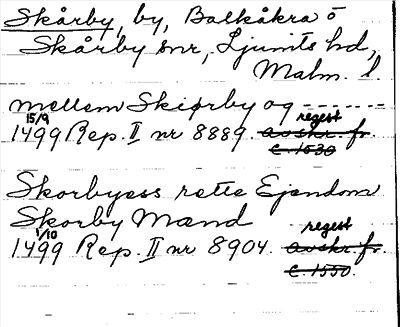 Skårby, by, Balkåkra o
Skårby snr, Ljunits hd,
Malm. l.
mellem Skiørby og -------
15/9 regest
1499 Rep. II nr 8889. avskr. fr.
c. 1530
Skorbyess rette Ejendom
Skorby Mænd
1/10 regest
1499 Rep. II nr 8904. avskr. fr.
c. 1550.